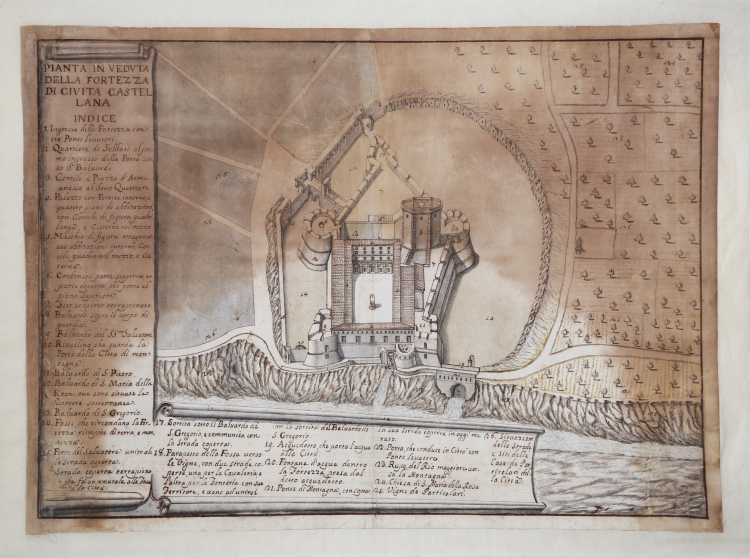 PIANTA IN VEDUTA
DELLA FORTEZZA
DI CIVITA CASTEL
LANA
INDICE
1. Ingresso della Fortezza con
tre Ponti levatori.
2. Quartiere di Soldati al pri
mo ingresso della Porta sot
to il Baluardo
3. Cortile, e Piazza d'Armi
annesso al detto Quartiere
4. Palazzo con Portici intorno, e
quattro piani di abitazione
con Cortile di figura quadri
lunga, e Cisterna nel mezzo
5. Maschio di figura ottagona
con abitazioni intorno Cor
tile quadro nel mezzo, e Ci
sterna
6. Cordonata parte scoperta, e
parte coperta, che porta al
piano superiore
7. Sito scoperto terrapienato
8. Baluardo sopra il corpo di
guardia
9. Baluardo del SS.mo Salvatore
10. Rivellino che guarda la
Porta della Città di mon-
tagna
11. Baluardo di S. Pietro.
12. Baluardo di S. Maria della
Rosa, ove sono situate le
Carcere sotterranee
13. Baluardo di S. Gregorio.
14. Fossi, che circondano la For
tezza riempito di terra, e mon-
dezza
15. del Salvatore unito al
la Strada coperta.
16. Strada coperta terrapiena
ta murale alla
Città
17. Sortita sotto il Baluardo di
S. Gregorio, e communica con
la strada coperta
18. Parapetto della Fossa verso
le Vigne, con due strade co
perte una per la Cavalleria e
l'altra per la Fanteria con suo
Terrione, e vano ad unirsi
con la sortita del Baluardo di
S. Gregorio
19. Acquedotto, che porta l'acqua
alla Città
20. Fontane d'acqua dentro
la Fortezza, presa dal
detto acquedotto.
21. Ponte di Montagna, con sopra
la sua strada coperta in oggi mu
rato.
22. Porta, che conduce in Città con
Ponte levatoro.
23. Rupe del Rio maggiore ver
so la Montagna
24. Chiesa di S. Maria della Rosa
25. Vigne de Particolari.
26. Situazione
delle Strade
e Siti delle
Case de Par
ticolari del
la Città